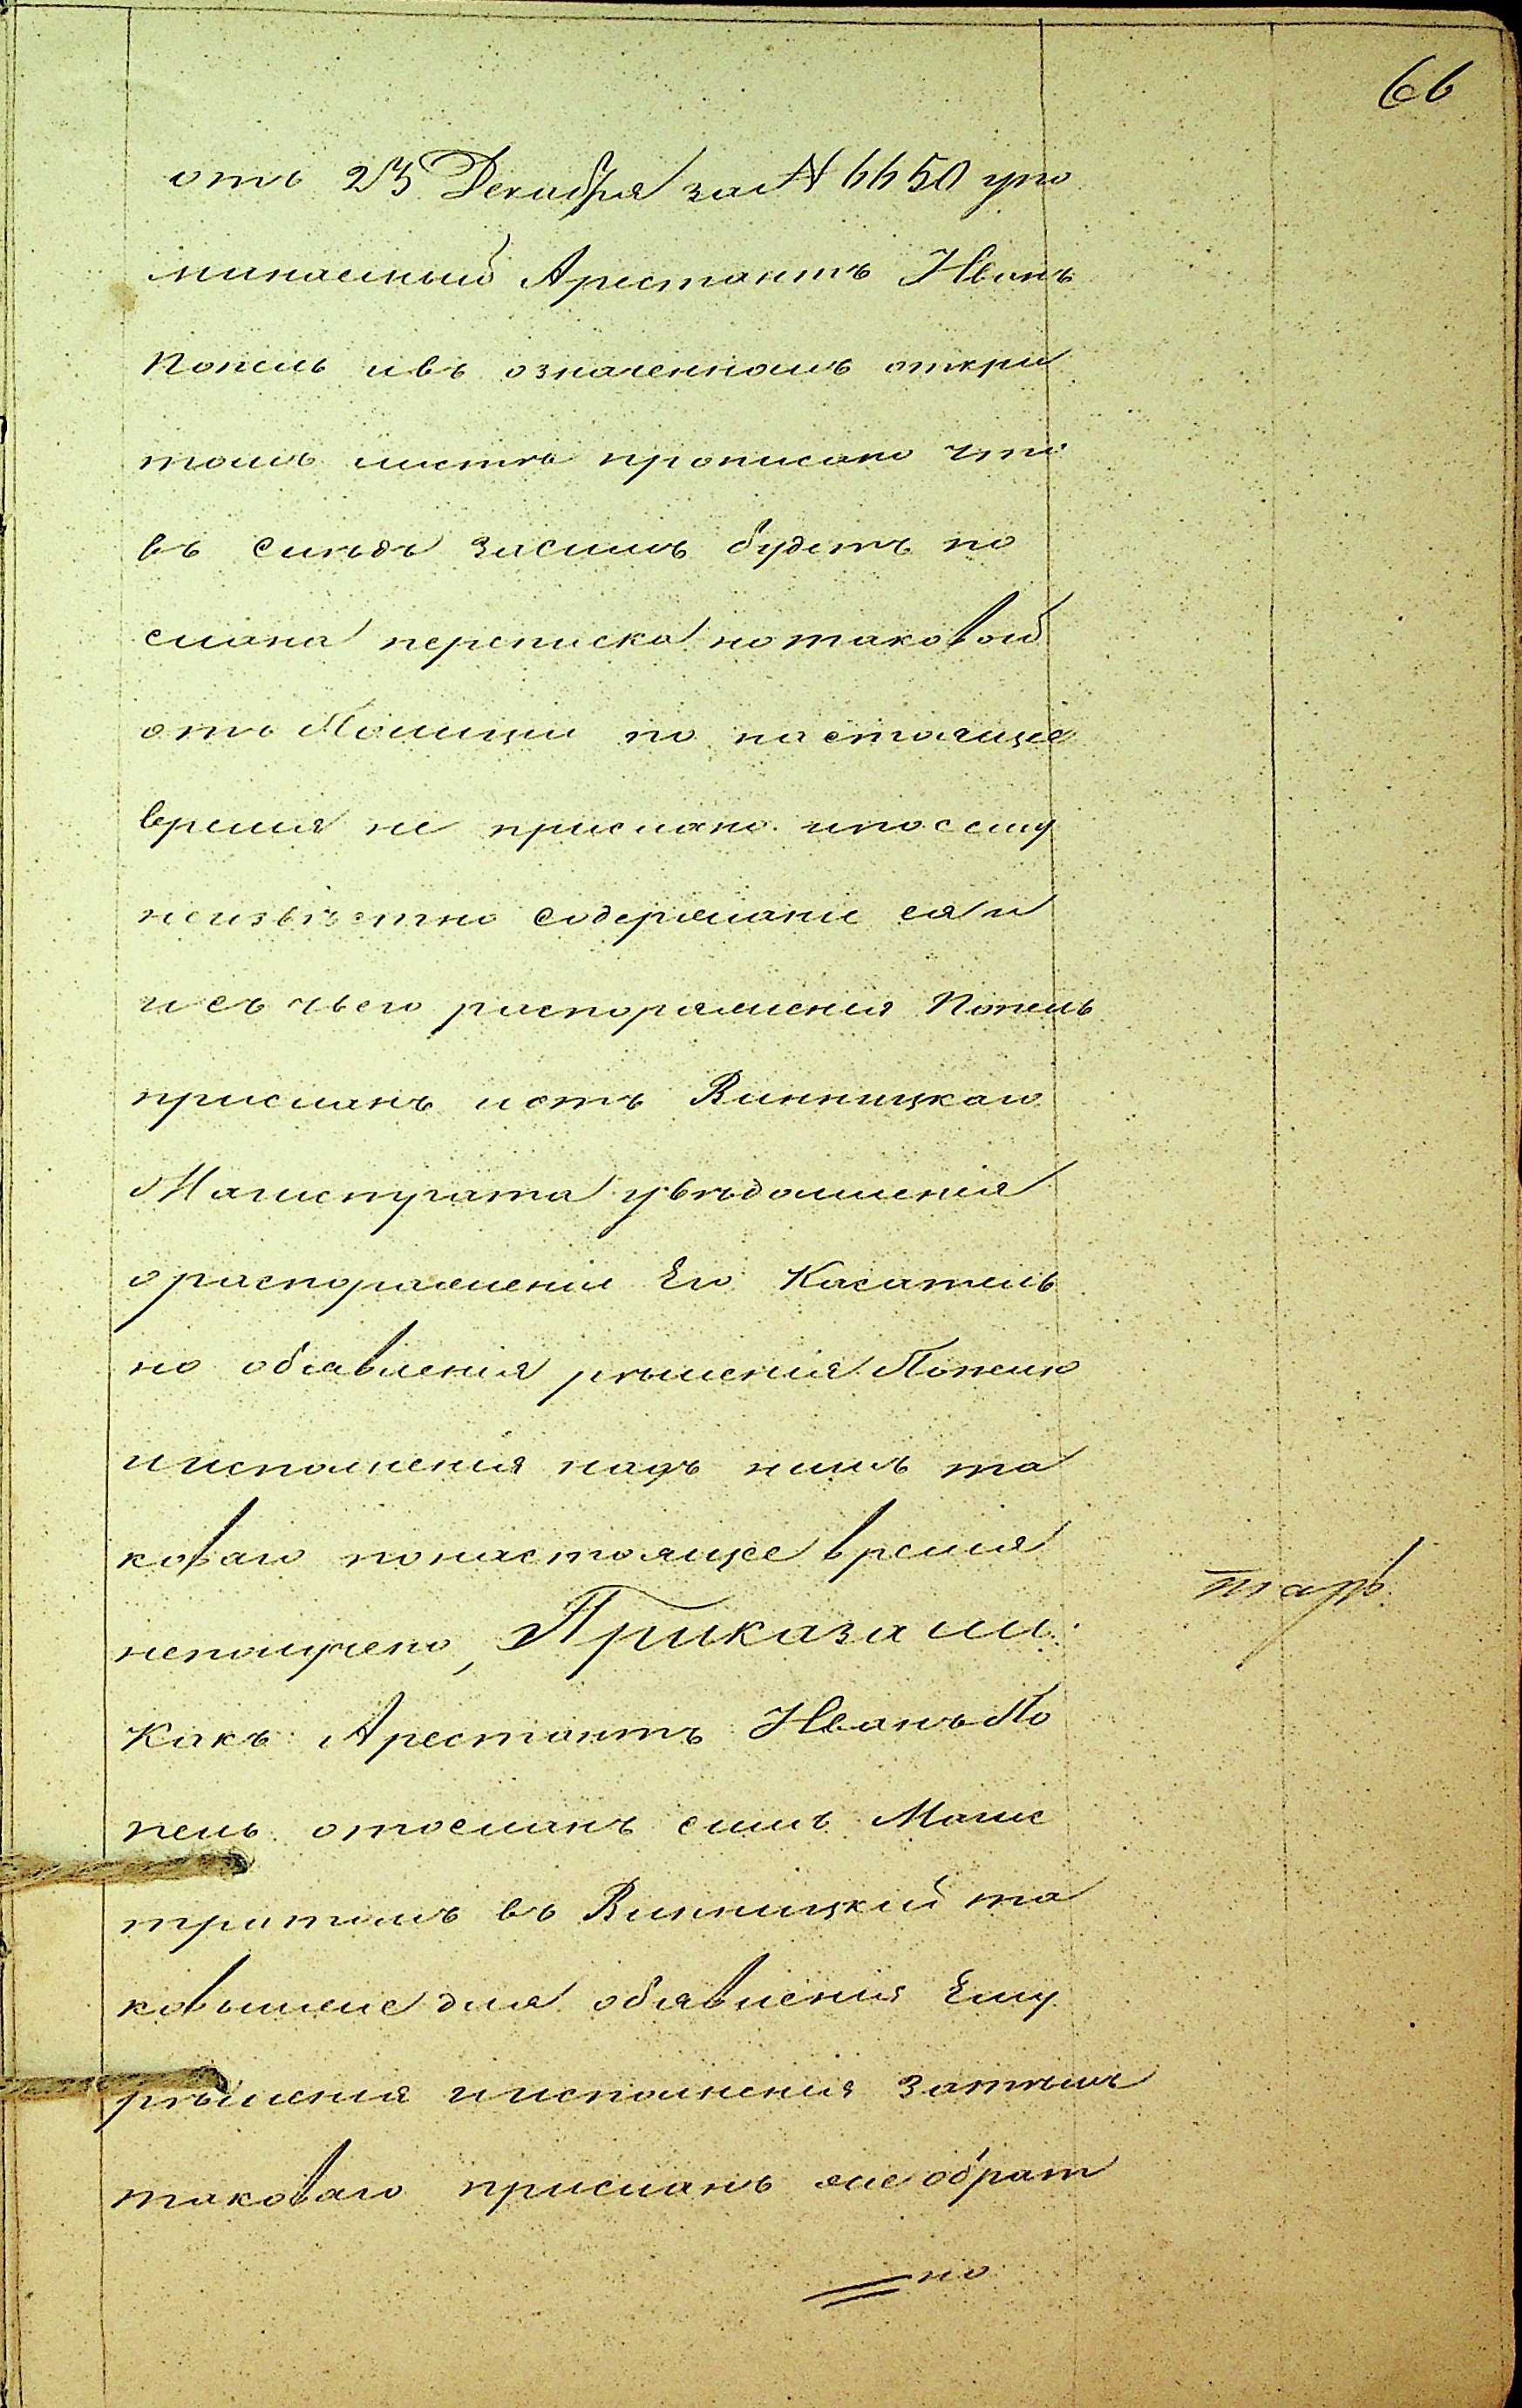 66
отъ 23 Декабря за № 6650 упо
минаемый Арестантъ Иванъ
Попель ивъ означенномъ откры
томъ листѣ прописано что
въ слѣдъ засимъ будетъ по
слана переписка но таковой
отъ Полиціи по настоящее
время не прислано ипосему
неизвѣстно содержаніе ея и
исъ чьего распоряженія Попель
присланъ иотъ Винницкаго
Магистрата увѣдомленія
ораспоряженіи Его Касатель
но обявленія рѣшенія Попелю
иисполненія надъ нимъ та
коваго понастоящее время
неполучено, Приказали:
Какъ Арестантъ Иванъ По
пель отосланъ симъ Магис
тратомъ въ Винницкій та
ковыйже для обявленія Ему
рѣшенія иисполненія затѣмъ
таковаго присланъ же обрат
но
тарь